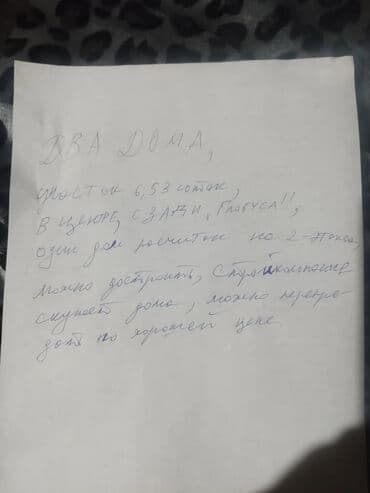 ДВА ДОМА,
участок 6,53 соток,
В центре, СЗАДИ „Глобуса",
один дом расчитан на 2-этажа,
можно достроить, стройкомпание
скупает дома, можно перепро-
дать по хорошей цене.